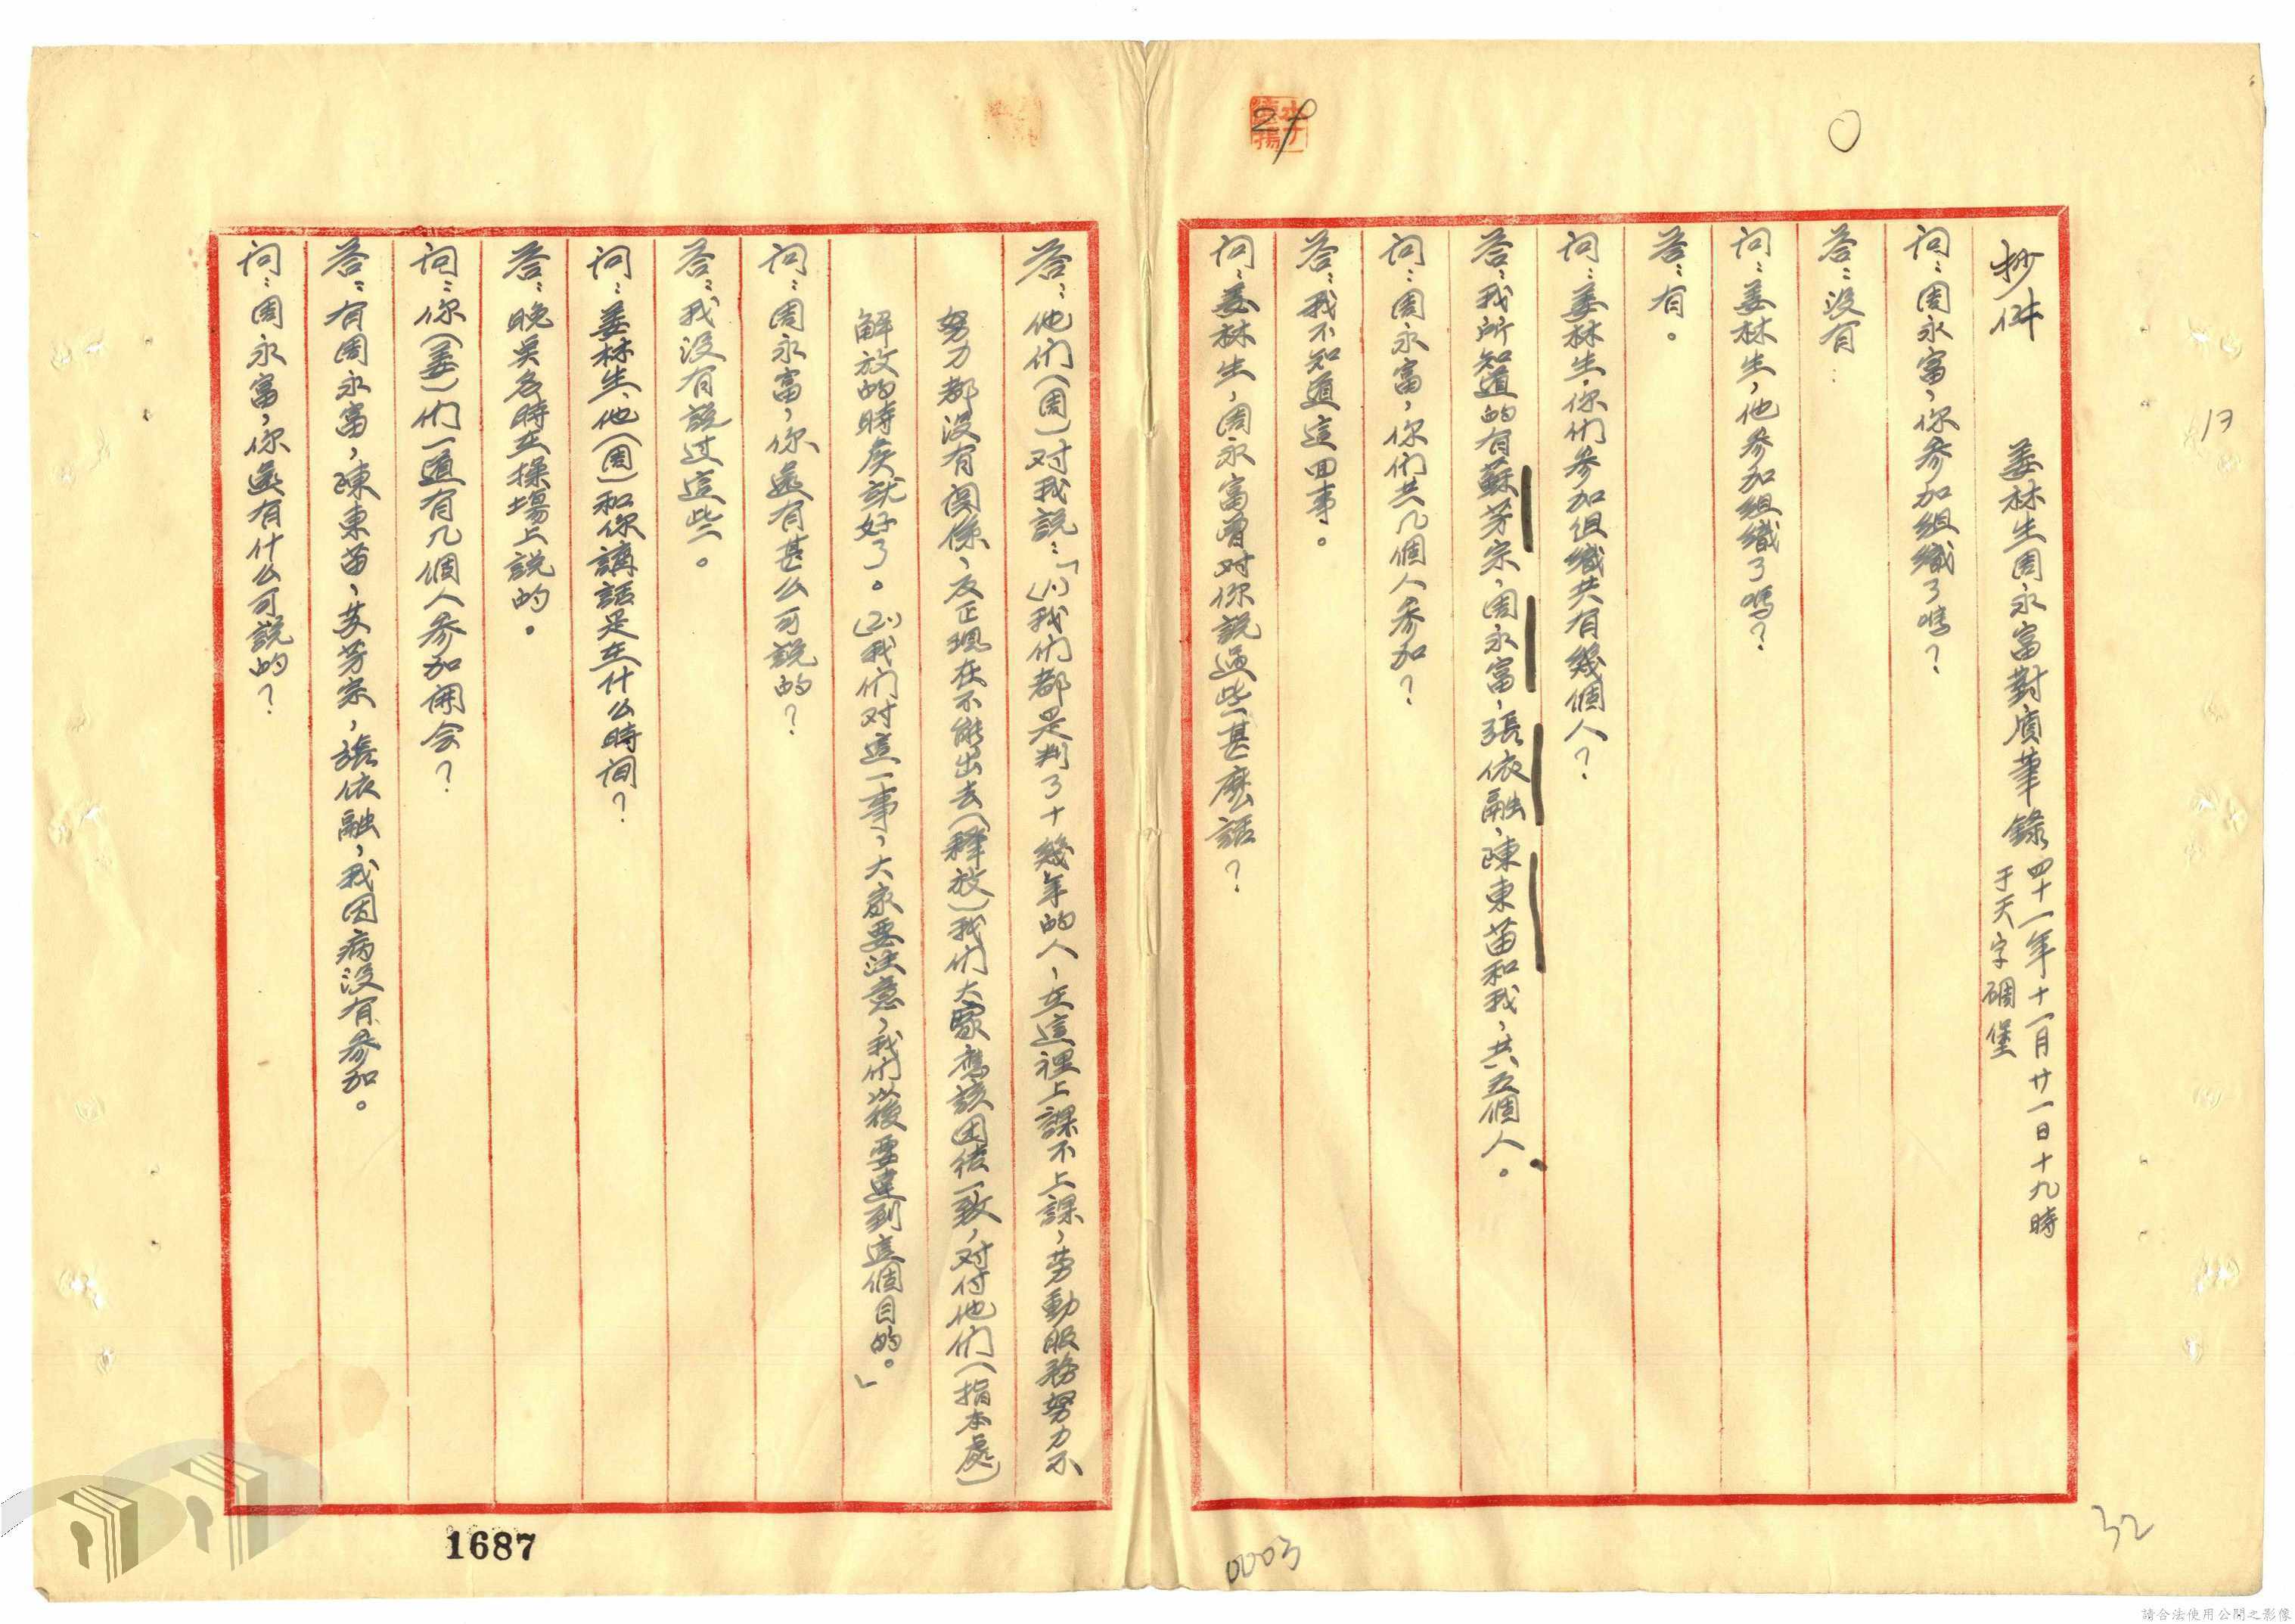 抄件
姜林生周永富對質筆錄 四十一年十一月廿一日十九時
于天字碉堡
问：周永富，你參加組織了嗎？
答：没有：
问：姜林生，他參加組織了嗎？
答：有。
问：姜林生，你們參加组織共有幾個人？
答：我所知道的有蘇芳宗，周永富，張依融，陳東苗和我，共五個人。
问：周永富，你們共几個人參加？
答：我不知道這回事。
问：姜林生，周永富曾对你説過些甚麽話？
答：他們（周）对我説：「⑴我們都是判了十幾年的人，在這裡上課不上課，劳動服務努力不
努力都没有関係，反正現在不能出去（釋放）我們大家應該团结一致，对付他們（指本處）
解放的時候就好了。⑵我們对這一事，大家要注意，我們以後要達到這個目的。」
问：周永富，你還有甚么可説的？
答：我没有説过這些。
问：姜林生，他（周）和你講話是在什么時间？
答：晚吴名時在操場上説的。
问：你（姜）們一道有几個人參加開会？
答：有周永富，陳東苗，苏芳宗，張依融，我因病没有參加。
问：周永富，你還有什么可説的？
29
17
32
0003
1687
請合法使用公開之影像